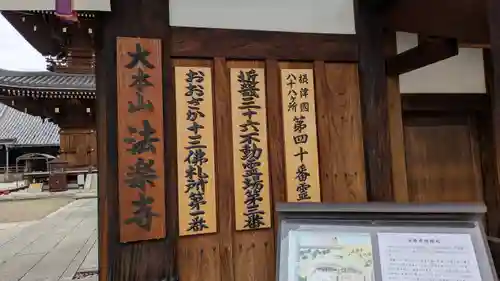 大本山 法楽寺
おおさか十三佛札所第一番
近畿三十六不動霊場第三番
摂津国
八十八ケ所
第四十番霊